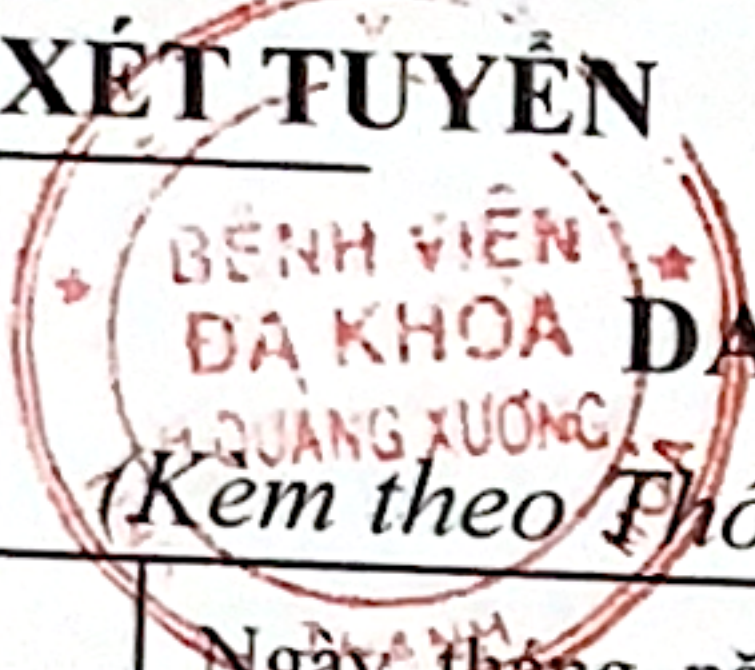 XÉT TUYỂN
BỆNH VIỆN
ĐA KHOA
H.QUẢNG XƯƠNG
(Kèm theo Thô
Ngày tháng